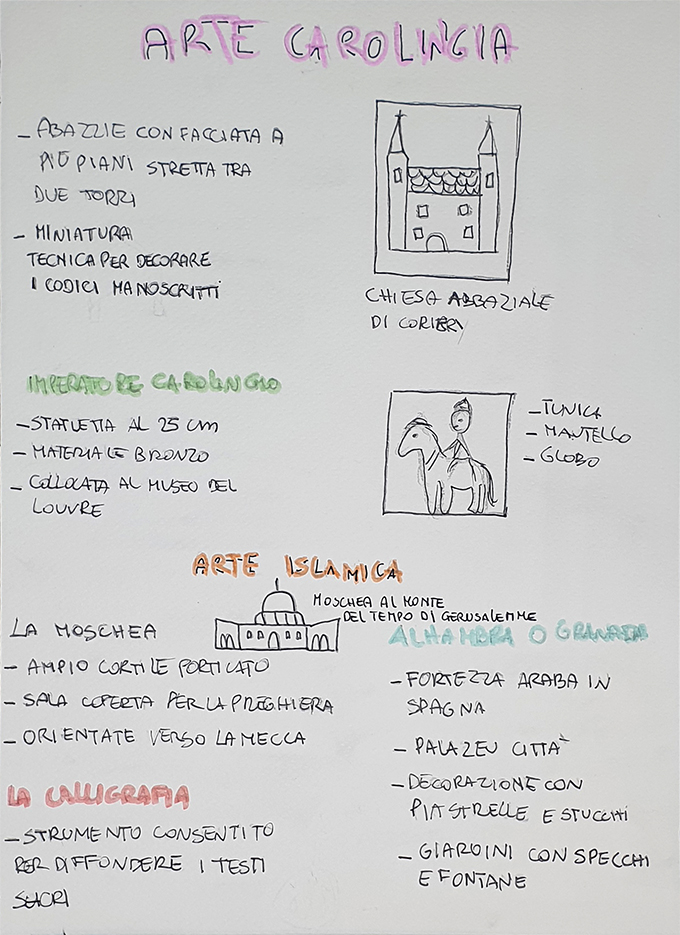 ARTE CAROLINGIA
- ABAZZIE CON FACCIATA A
PIÙ PIANI STRETTA TRA
DUE TORRI
- MINIATURA
TECNICA PER DECORARE
I CODICI MANOSCRITTI
CHIESA ABBAZIALE
DI
IMPERATORE CAROLINGIO
- STATUETTA AL 25 cm
- MATERIALE BRONZO
- COLLOCATA AL MUSEO DEL
LOUVRE
- TUNICA
- MANTELLO
- GLOBO
ARTE ISLAMICA
MOSCHEA AL MONTE
DEL TEMPO DI GERUSALEMME
LA MOSCHEA
- AMPIO CORTILE PORTICATO
- SALA COPERTA PER LA PREGHIERA
- ORIENTATE VERSO LA MECCA
LA CALLIGRAFIA
- STRUMENTO CONSENTITO
PER DIFFONDERE I TESTI
SACRI
ALHAMBRA O GRANADA
- FORTEZZA ARABA IN
SPAGNA
- CITTÀ
- DECORAZIONE CON
PIASTRELLE E STUCCHI
- GIARDINI CON SPECCHI
E FONTANE